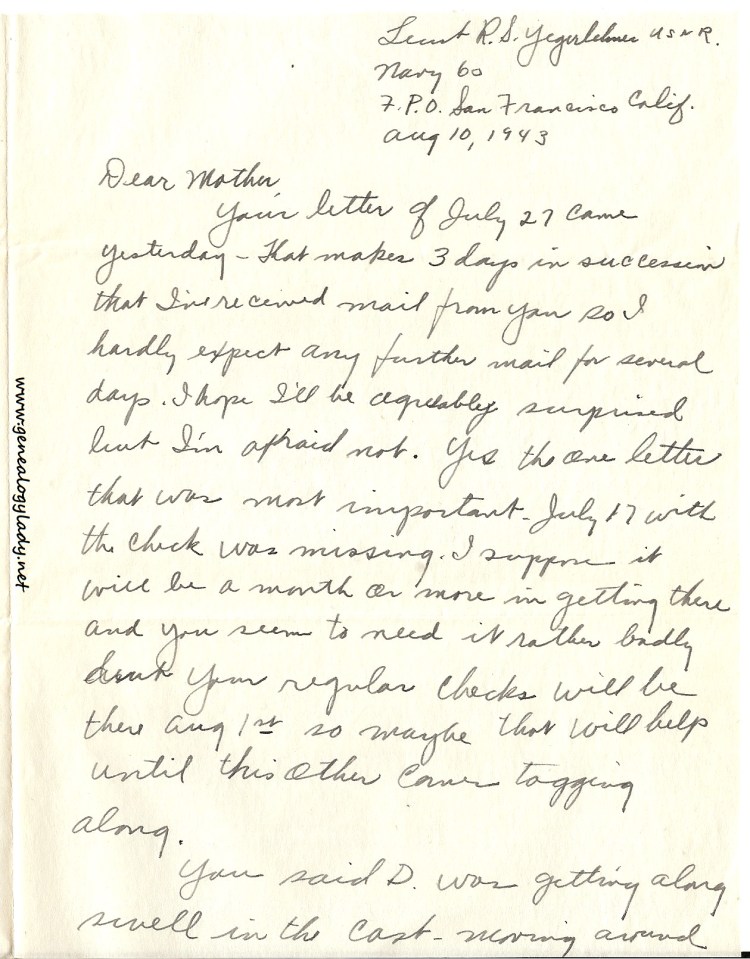 Lieut R.S. Yegerlehner USNR.
Navy 60
F.P.O. San Francisco Calif.
Aug 10, 1943
Dear Mother,
Your letter of July 27 came
yesterday - that makes 3 days in succession
that I've received mail from you so I
hardly expect any further mail for several
days. I hope I'll be agreeably surprised
but I'm afraid not. Yes the one letter
that was most important - July 17 with
the check was missing. I suppose it
will be a month or more in getting there
and you seem to need it rather badly
but your regular checks will be
there Aug 1st so maybe that will help
until this other comes tagging
along.
You said D. was getting along
swell in the cast - moving around
www.genealogylady.net